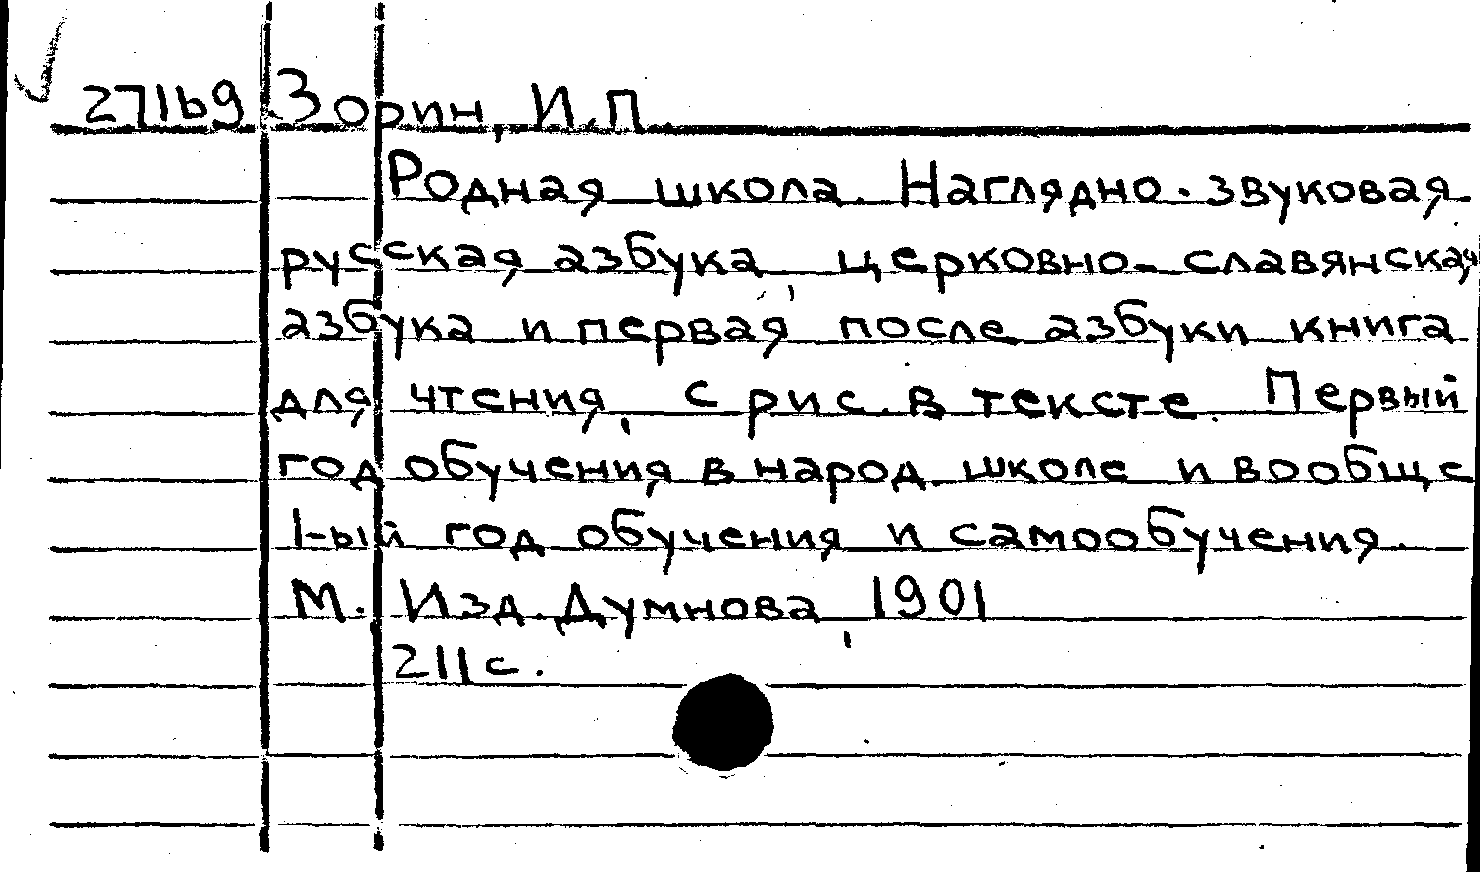 27169 Зорин, И.П.
Родная школа. Наглядно-звуковая
русская азбука, церковно-славянская
азбука и первая после азбуки книга
для чтения, с рис. в тексте. Первый
год обучения в народ. школе и вообще
1-ый год обучения и самообучения.
М. Изд. Думнова, 1901
211 с.